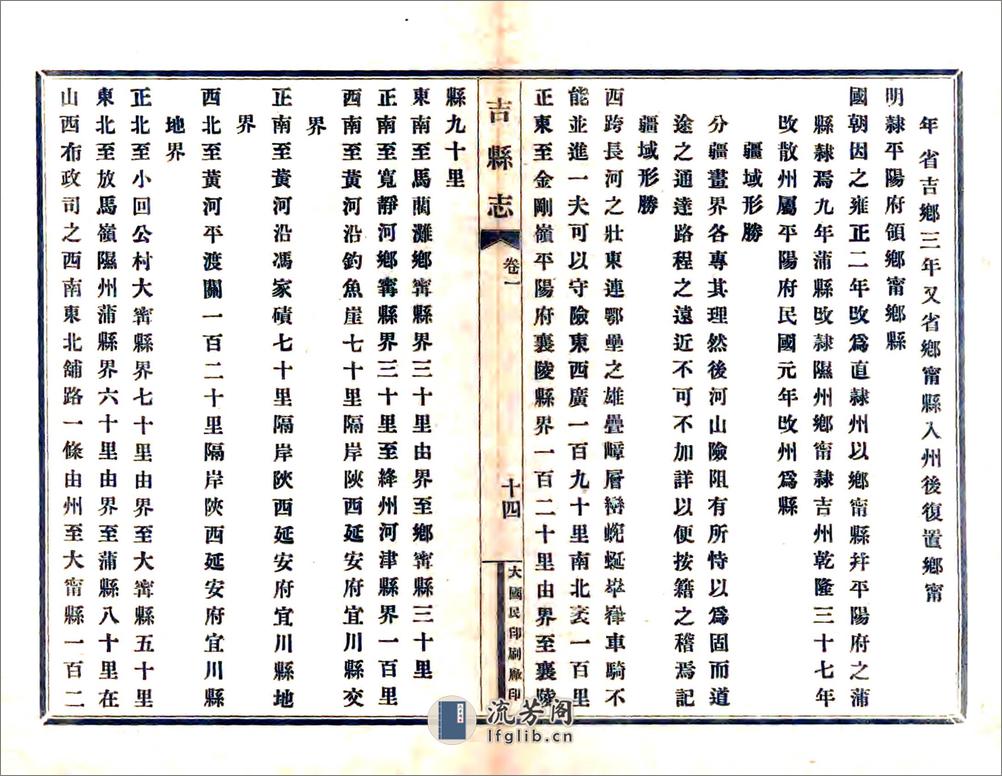 年省吉鄉三年又省鄉甯縣入州後復置鄉甯
明隸平陽府領鄉甯鄉縣
國朝因之雍正二年攺爲直隸州以鄉甯縣幷平陽府之蒲
縣隸焉九年蒲縣攺隸隰州鄉甯隸吉州乾隆三十七年
攺散州屬平陽府民國元年攺州爲縣
疆域形勝
分疆畫界各專其理然後河山險阻有所恃以爲固而道
途之通達路程之遠近不可不加詳以便按籍之稽焉記
疆域形勝
西跨長河之壯東連鄂壘之雄疊嶂層巒蜿蜒崒嵂車騎不
能並進一夫可以守險東西廣一百九十里南北袤一百里
正東至金剛嶺平陽府襄陵縣界一百二十里由界至襄陵
吉縣志
卷一
十四
大國民印刷廠印
縣九十里
東南至馬蘭灘鄉甯縣界三十里由界至鄉甯縣三十里
正南至寬靜河鄉甯縣界三十里至絳州河津縣界一百里
西南至黃河沿釣魚崖七十里隔岸陜西延安府宜川縣交
界
正南至黃河沿馮家磧七十里隔岸陜西延安府宜川縣地
界
西北至黃河平渡關一百二十里隔岸陜西延安府宜川縣
地界
正北至小回公村大甯縣界七十里由界至大甯縣五十里
東北至放馬嶺隰州蒲縣界六十里由界至蒲縣八十里在
山西布政司之西南東北舖路一條由州至大甯縣一百二
流芳閣
lfglib.cn